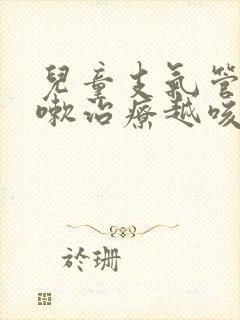 兒童支氣管
嗽治療越咳
於珊